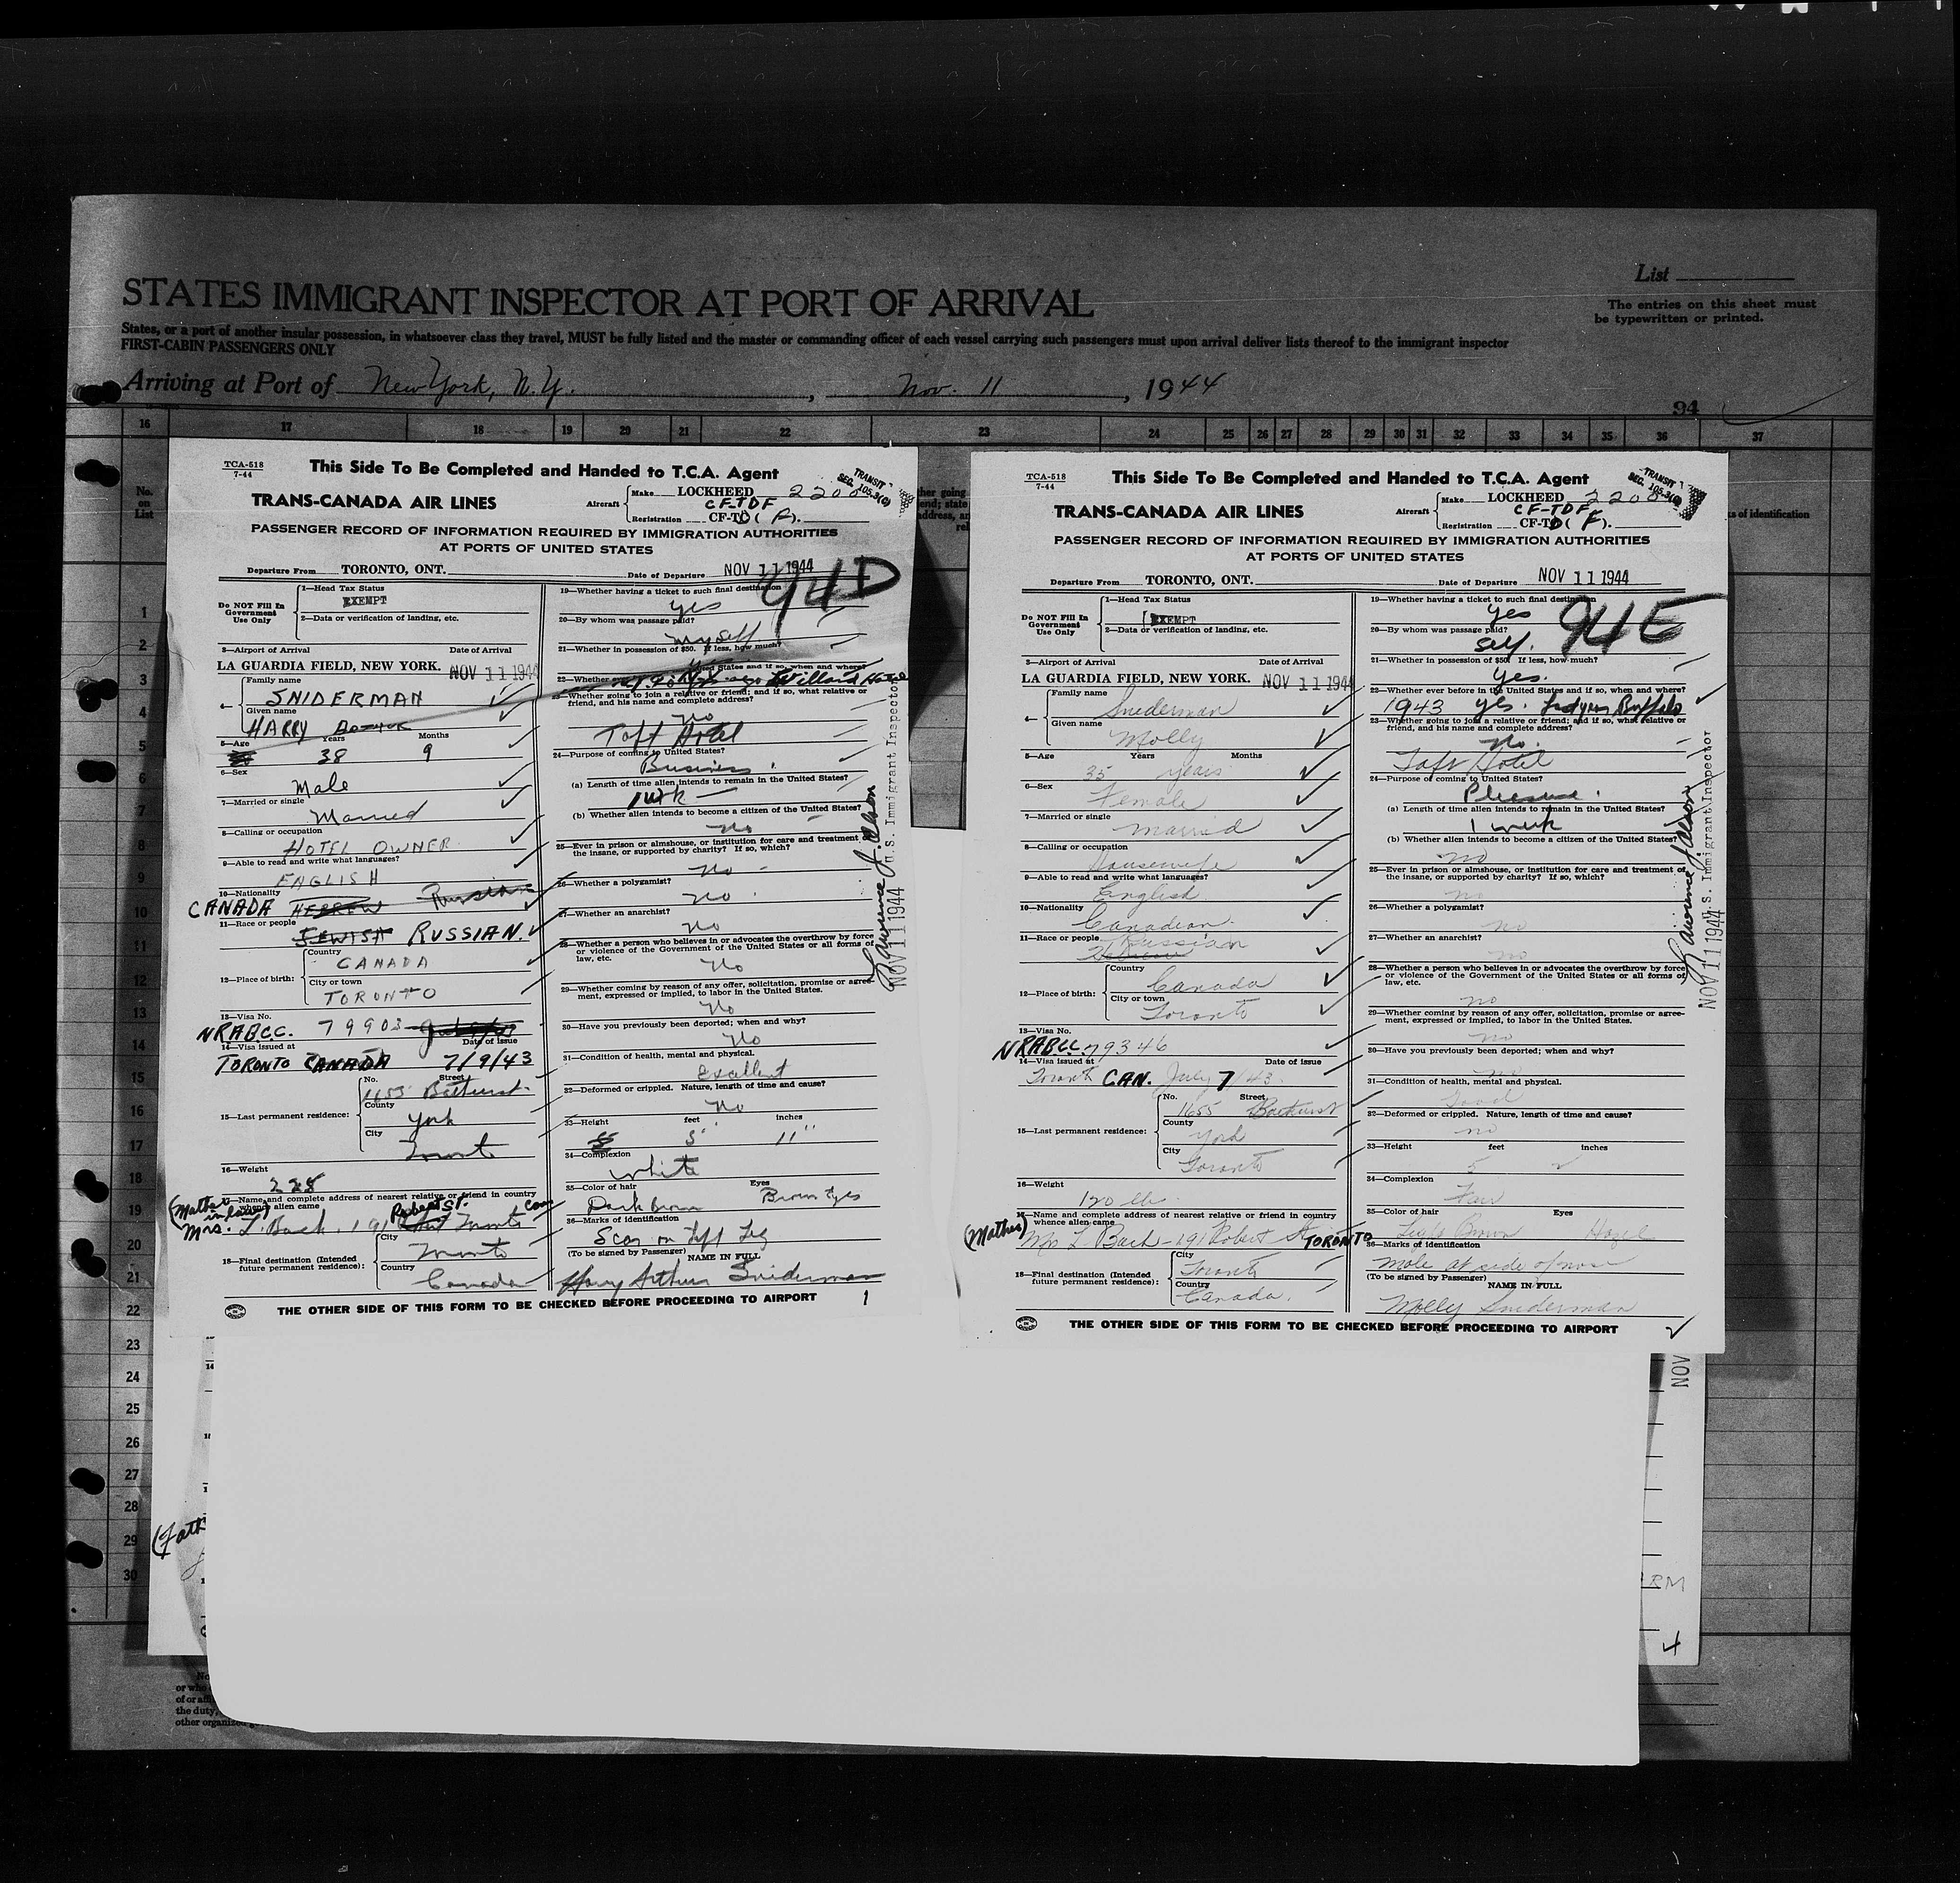 List
STATES IMMIGRANT INSPECTOR AT PORT OF ARRIVAL
The entries on this sheet must
be typewritten or printed.
States, or a port of another insular possession, in whatsoever class they travel, MUST be fully listed and the master or commanding officer of each vessel carrying such passengers must upon arrival deliver lists thereof to the immigrant inspector
FIRST-CABIN PASSENGERS ONLY
Arriving at Port of New York, N.Y. , Nov. 11 , 1944
94
16 17 18 19 20 21 22 23 24 25 26 27 28 29 30 31 32 33 34 35 36 37
No.
on
List
ks of identification
1
2
3
4
5
6
7
8
9
10
11
12
13
14
15
16
17
18
19
20
21
22
23
24
25
26
27
28
29
30
TCA-518
7-44
This Side To Be Completed and Handed to T.C.A. Agent
TRANSIT
SEC. 105.3(C)
TRANS-CANADA AIR LINES
Aircraft
Make LOCKHEED 2200
CF-TDF
Registration CF-TD( F).
PASSENGER RECORD OF INFORMATION REQUIRED BY IMMIGRATION AUTHORITIES
AT PORTS OF UNITED STATES
Departure From TORONTO, ONT. Date of Departure NOV 11 1944
94D
Do NOT Fill In
Government
Use Only
1—Head Tax Status
EXEMPT
2—Data or verification of landing, etc.
3—Airport of Arrival Date of Arrival
LA GUARDIA FIELD, NEW YORK. NOV 11 1944
4—
Family name
SNIDERMAN
Given name
HARRY
5—Age Years Months
38 9
6—Sex
Male
7—Married or single
Married
8—Calling or occupation
HOTEL OWNER
9—Able to read and write what languages?
ENGLISH
10—Nationality
CANADA HEBREW Russian
11—Race or people
JEWISH RUSSIAN.
12—Place of birth:
Country
CANADA
City or town
TORONTO
13—Visa No.
NRABCC. 79903
14—Visa issued at Date of issue
TORONTO CANADA 7/9/43
15—Last permanent residence:
No. Street
1655 Bathurst
County
York
City
Toronto
16—Weight
228
17—Name and complete address of nearest relative or friend in country
whence alien came
(Mother
in law)
Robert St. Can
Mrs. L. Back. 191 Toronto
18—Final destination (Intended
future permanent residence):
City
Toronto
Country
Canada
19—Whether having a ticket to such final destination
yes
20—By whom was passage paid?
myself.
21—Whether in possession of $50. If less, how much?
yes
22—Whether ever United States and if so, when and where?
Willard Hotel
23—Whether going to join a relative or friend; and if so, what relative or
friend, and his name and complete address?
no
Taft Hotel
24—Purpose of coming to United States?
Business.
(a) Length of time alien intends to remain in the United States?
1 wk
(b) Whether alien intends to become a citizen of the United States?
no
25—Ever in prison or almshouse, or institution for care and treatment of
the insane, or supported by charity? If so, which?
no
26—Whether a polygamist?
no
27—Whether an anarchist?
no
28—Whether a person who believes in or advocates the overthrow by force
or violence of the Government of the United States or all forms of
law, etc.
no
29—Whether coming by reason of any offer, solicitation, promise or agree-
ment, expressed or implied, to labor in the United States.
no
30—Have you previously been deported; when and why?
no
31—Condition of health, mental and physical.
Excellent
32—Deformed or crippled. Nature, length of time and cause?
no
33—Height feet inches
5' 11"
34—Complexion
white
35—Color of hair Eyes
Dark brown Brown Eyes
36—Marks of identification
Scar on Left Leg
(To be signed by Passenger) NAME IN FULL
Harry Arthur Sniderman
THE OTHER SIDE OF THIS FORM TO BE CHECKED BEFORE PROCEEDING TO AIRPORT 1
U.S. Immigrant Inspector
NOV 11 1944
TCA-518
7-44
This Side To Be Completed and Handed to T.C.A. Agent
TRANSIT
SEC. 105.3(C)
TRANS-CANADA AIR LINES
Aircraft
Make LOCKHEED 2200
CF-TDF
Registration CF-TD( F).
PASSENGER RECORD OF INFORMATION REQUIRED BY IMMIGRATION AUTHORITIES
AT PORTS OF UNITED STATES
Departure From TORONTO, ONT. Date of Departure NOV 11 1944
94E
Do NOT Fill In
Government
Use Only
1—Head Tax Status
EXEMPT
2—Data or verification of landing, etc.
3—Airport of Arrival Date of Arrival
LA GUARDIA FIELD, NEW YORK. NOV 11 1944
4—
Family name
Sniderman
Given name
Molly
5—Age Years Months
35 years
6—Sex
Female
7—Married or single
married
8—Calling or occupation
Housewife
9—Able to read and write what languages?
English
10—Nationality
Canadian
11—Race or people
Russian
Hebrew
12—Place of birth:
Country
Canada
City or town
Toronto
13—Visa No.
NRABCC 79346
14—Visa issued at Date of issue
Toronto CAN. July 7/43.
15—Last permanent residence:
No. Street
1655 Bathurst
County
York
City
Toronto
16—Weight
120 lbs.
17—Name and complete address of nearest relative or friend in country
whence alien came
(Mother)
Mrs L. Back - 191 Robert St TORONTO
18—Final destination (Intended
future permanent residence):
City
Toronto
Country
Canada.
19—Whether having a ticket to such final destination
yes
20—By whom was passage paid?
self.
21—Whether in possession of $50. If less, how much?
yes.
22—Whether ever before in the United States and if so, when and where?
1943 yes. Buffalo
23—Whether going to join a relative or friend; and if so, what relative or
friend, and his name and complete address?
no.
Taft Hotel
24—Purpose of coming to United States?
Pleasure.
(a) Length of time alien intends to remain in the United States?
1 week
(b) Whether alien intends to become a citizen of the United States?
no
25—Ever in prison or almshouse, or institution for care and treatment of
the insane, or supported by charity? If so, which?
no
26—Whether a polygamist?
no
27—Whether an anarchist?
no
28—Whether a person who believes in or advocates the overthrow by force
or violence of the Government of the United States or all forms of
law, etc.
no
29—Whether coming by reason of any offer, solicitation, promise or agree-
ment, expressed or implied, to labor in the United States.
no
30—Have you previously been deported; when and why?
no
31—Condition of health, mental and physical.
Good
32—Deformed or crippled. Nature, length of time and cause?
no
33—Height feet inches
5 2
34—Complexion
Fair
35—Color of hair Eyes
Light Brown Hazel
36—Marks of identification
mole at side of nose
(To be signed by Passenger) NAME IN FULL
Molly Sniderman
THE OTHER SIDE OF THIS FORM TO BE CHECKED BEFORE PROCEEDING TO AIRPORT 2
U.S. Immigrant Inspector
NOV 11 1944
NOV
(Fath
RM
4
No
or who
of or affi
the duty,
other organized